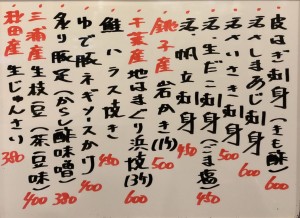 皮はぎ刺身(きも酢) 600
活しまあじ刺身 600
活いさき刺身 500
活生だこ刺身(ごま塩) 450
活帆立刺身 500
銚子産 岩かき(1ケ) 500
千葉産 地はまぐり浜焼(3ケ) 600
鮭ハラス焼き 450
ゆで豚ネギ 400
炙り豚足(からし酢味噌) 380
三浦産 生枝豆(茶豆味) 400
秋田産 生じゅんさい 380